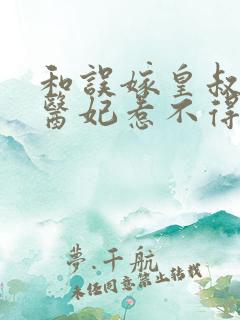 和誤嫁皇叔
醫妃惹不得
夢.千航
未任同意禁止转载